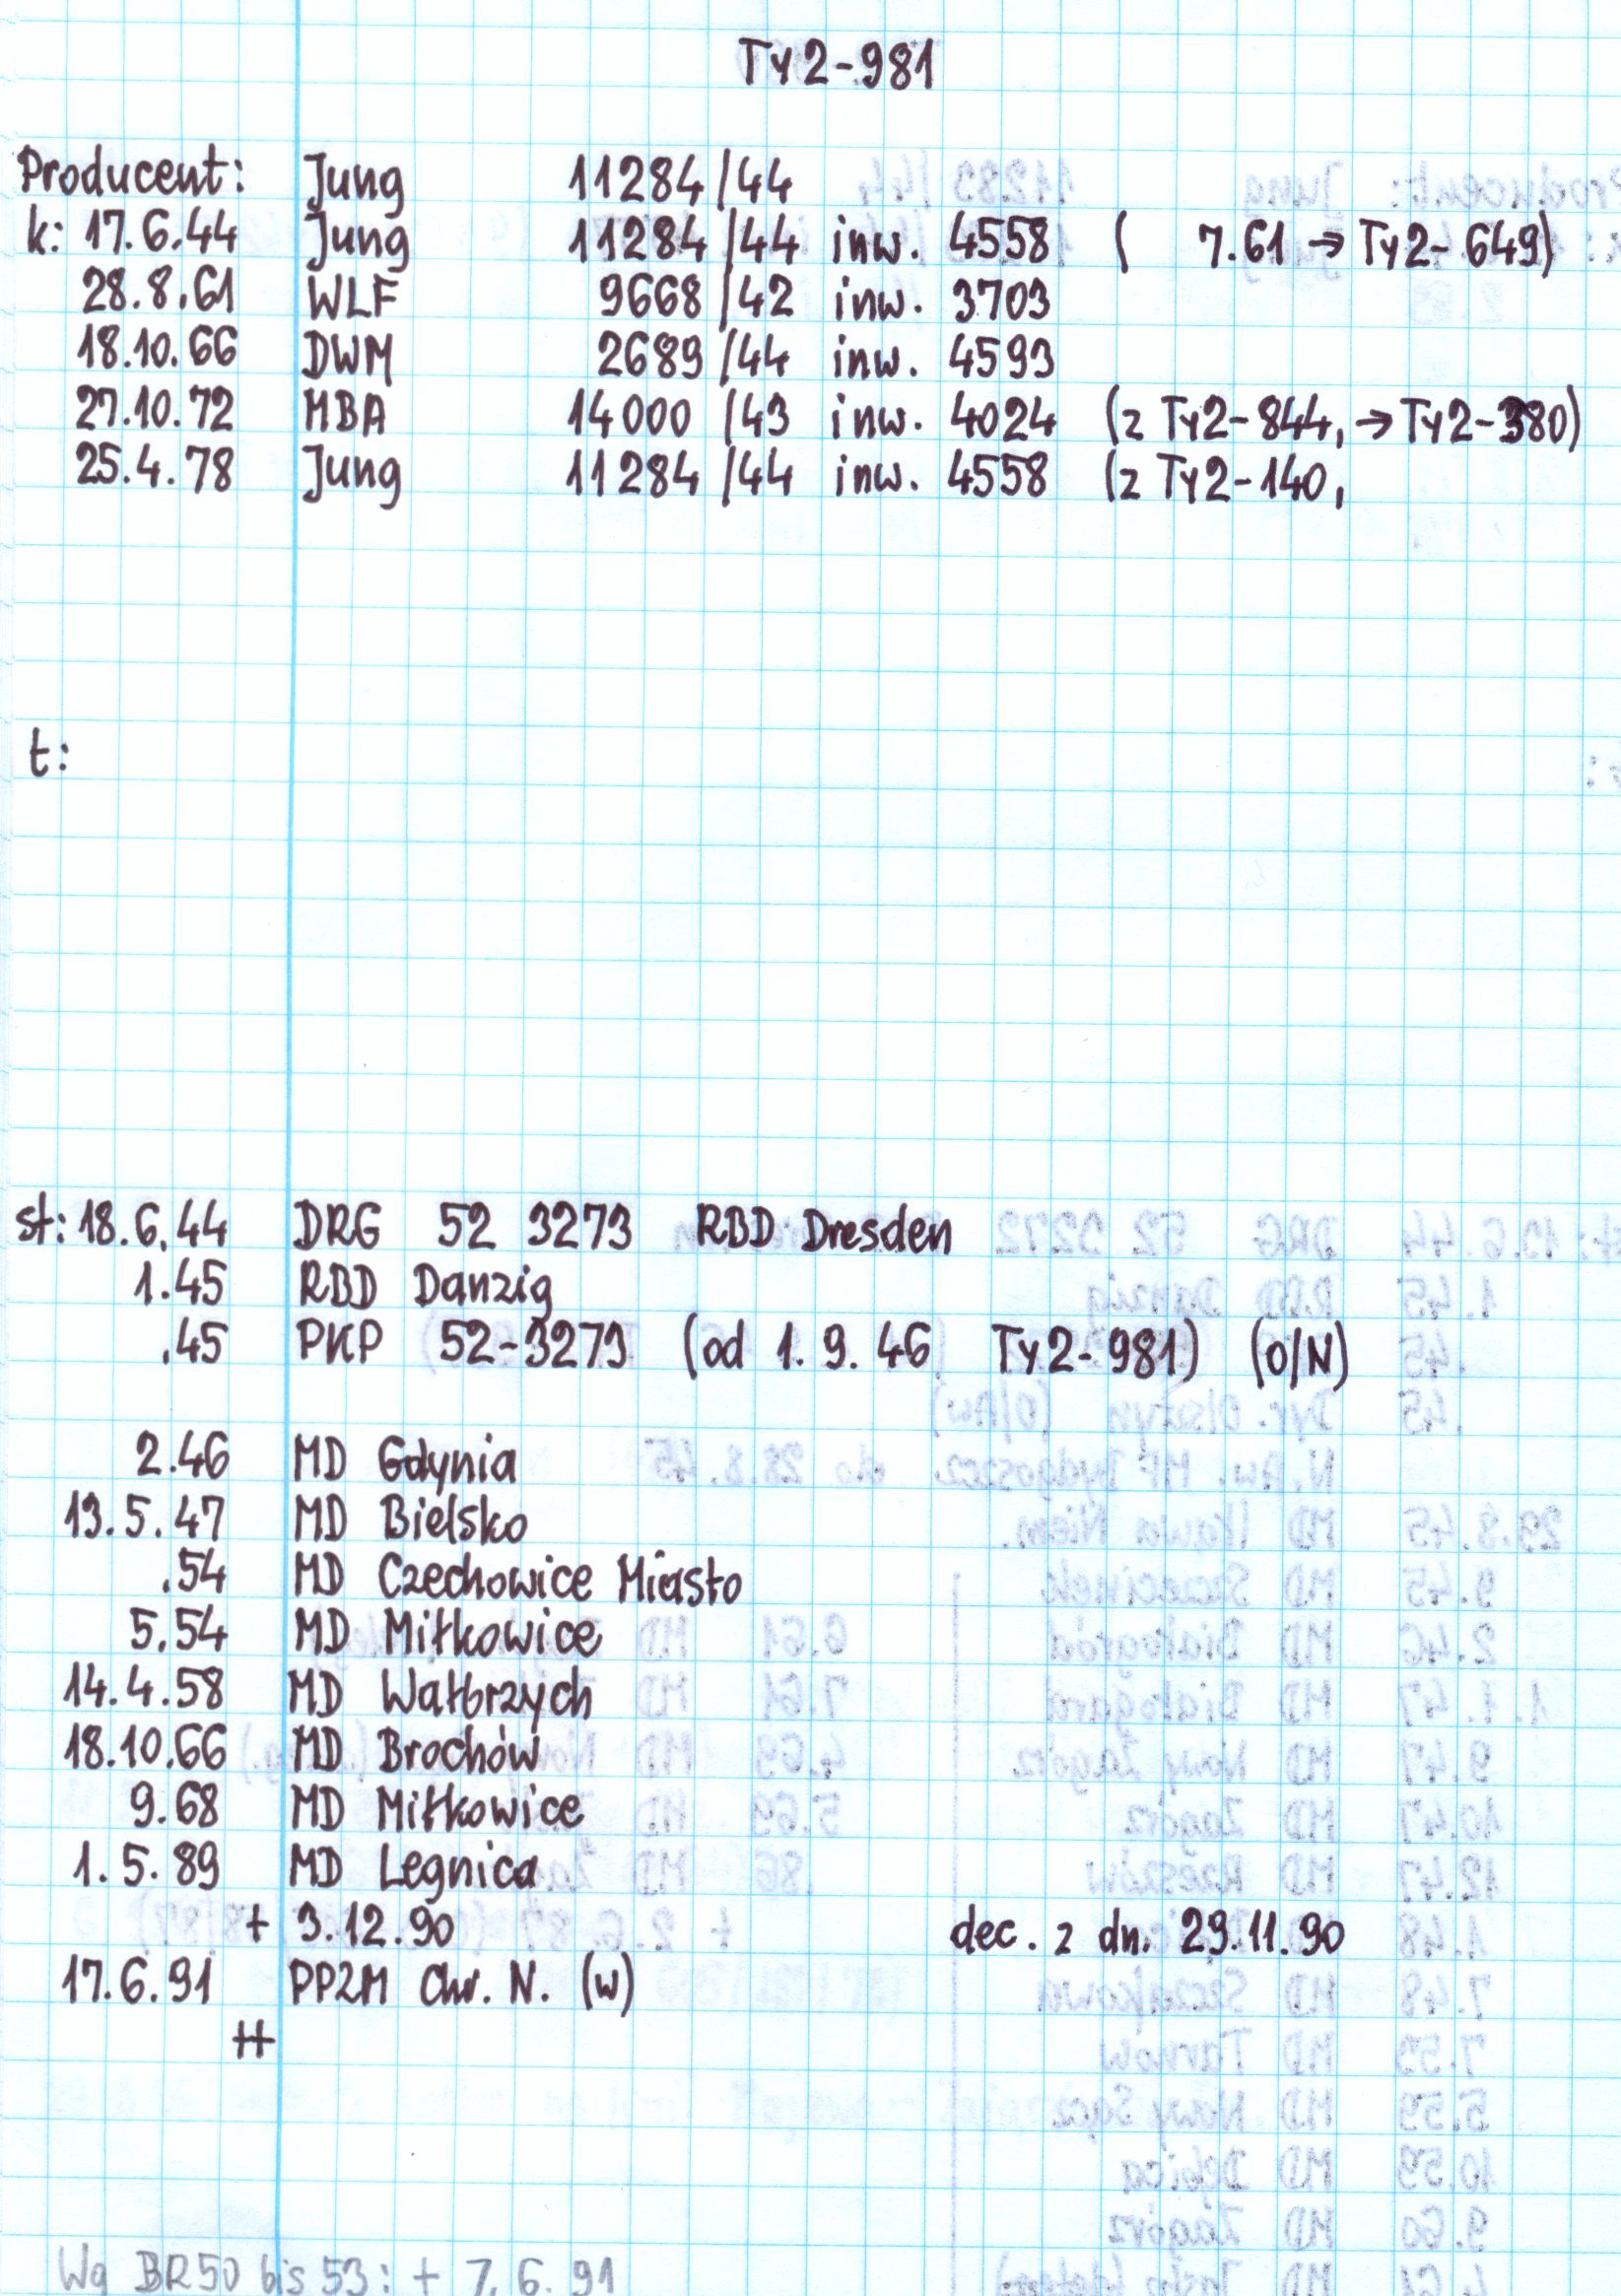 Ty2-981
Producent: Jung 11284/44
k: 17.6.44 Jung 11284/44 inw. 4558 ( 7.61 → Ty2-649)
28.8.61 WLF 9668/42 inw. 3703
18.10.66 DWM 2689/44 inw. 4593
27.10.72 MBA 14000/43 inw. 4024 (z Ty2-844, → Ty2-380)
25.4.78 Jung 11284/44 inw. 4558 (z Ty2-140,
t:
st: 18.6.44 DRG 52 3273 RBD Dresden
1.45 RBD Danzig
.45 PKP 52-3273 (od 1.9.46 Ty2-981) (O/N)
2.46 MD Gdynia
13.5.47 MD Bielsko
.54 MD Czechowice Miasto
5.54 MD Miłkowice
14.4.58 MD Wałbrzych
18.10.66 MD Brochów
9.68 MD Miłkowice
1.5.89 MD Legnica
+ 3.12.90 dec. z dn. 29.11.90
17.6.91 PPZM Chr. N. (w)
++
Wg BR50 bis 53: + 7.6.91